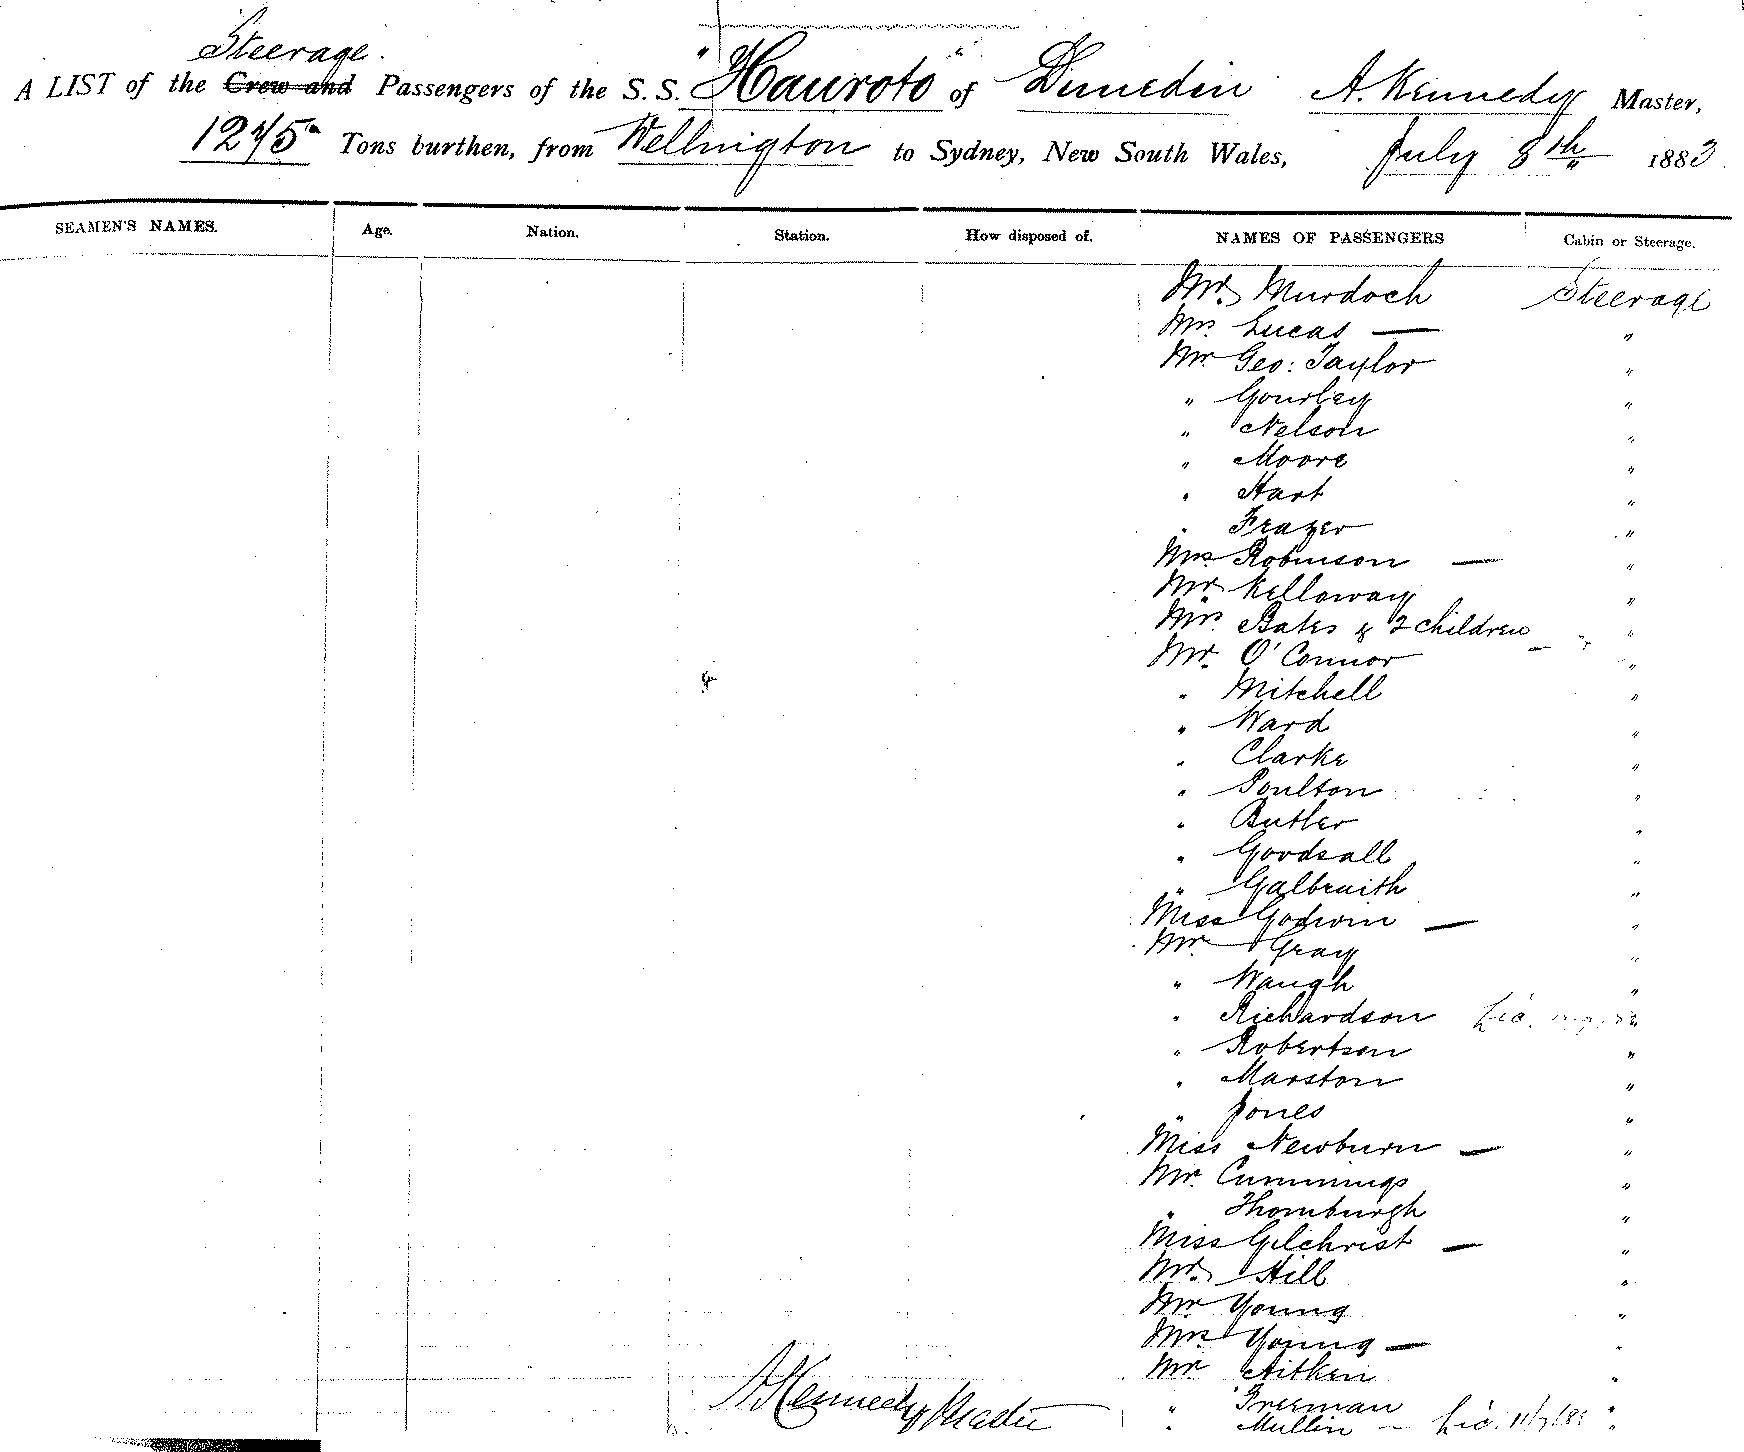 Steerage.
A LIST of the Crew and Passengers of the S.S. "Hauroto" of Dunedin A. Kennedy Master,
1245 Tons burthen, from Wellington to Sydney, New South Wales, July 8th 1883
SEAMEN'S NAMES. Age. Nation. Station. How disposed of. NAMES OF PASSENGERS Cabin or Steerage.
Mr. Murdoch Steerage
Mrs Lucas — "
Mr Geo: Taylor "
" Gourley "
" Nelson "
" Moore "
" Hart "
" Frazer "
Mrs Robinson — "
Mr Kelloway "
Mrs. Bates & 2 children — "
Mr. O'Connor "
" Mitchell "
" Ward "
" Clarke "
" Poulton "
" Butler "
" Goodsall "
" Galbraith "
Miss Godwin — "
Mr. Gray "
" Waugh "
" Richardson "
" Robertson "
" Marston "
" Jones "
Miss Newburn — "
Mr. Cummings "
" Thornburgh "
Miss Gilchrist — "
Mr. Hill "
Mr Young "
Mrs Young — "
Mr Aitken "
" Freeman "
" Mullin — "
A Kennedy Master